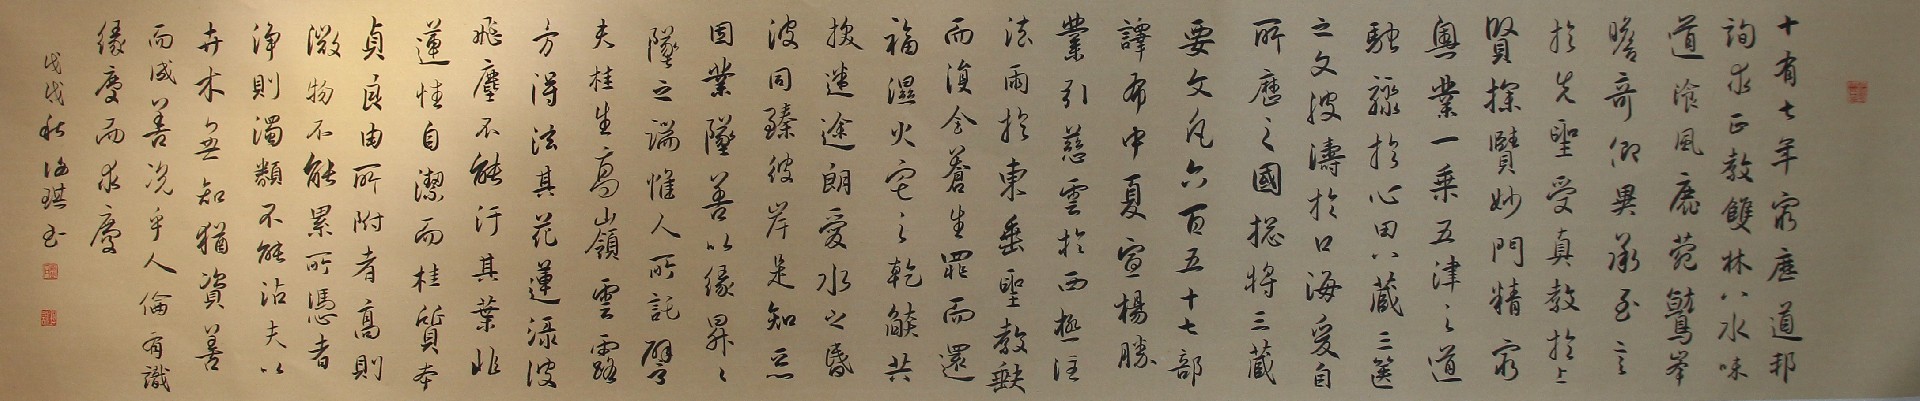 十有七年窮歷道邦
詢求正教雙林八水味
道飡風鹿菀鷲峯
瞻奇仰異承至言
於先聖受真教於上
賢探賾妙門精窮
奧業一乘五津之道
馳驟於心田八藏三篋
之文波濤於口海爰自
所歷之國揔將三藏
要文凡六百五十七部
譯布中夏宣揚勝
業引慈雲於西極注
法雨於東垂聖教缺
而復全蒼生罪而還
福濕火宅之乾燄共
拔迷途朗愛水之昏
波同臻彼岸是知惡
因業墜善以緣昇〻
墜之端惟人所託譬
夫桂生高嶺雲露
方得泫其花蓮淥波
飛塵不能汙其葉非
蓮性自潔而桂質本
貞良由所附者高則
微物不能累所憑者
淨則濁類不能沾夫以
卉木無知猶資善
而成善況乎人倫有識
緣慶而求慶
戊戌秋琪书